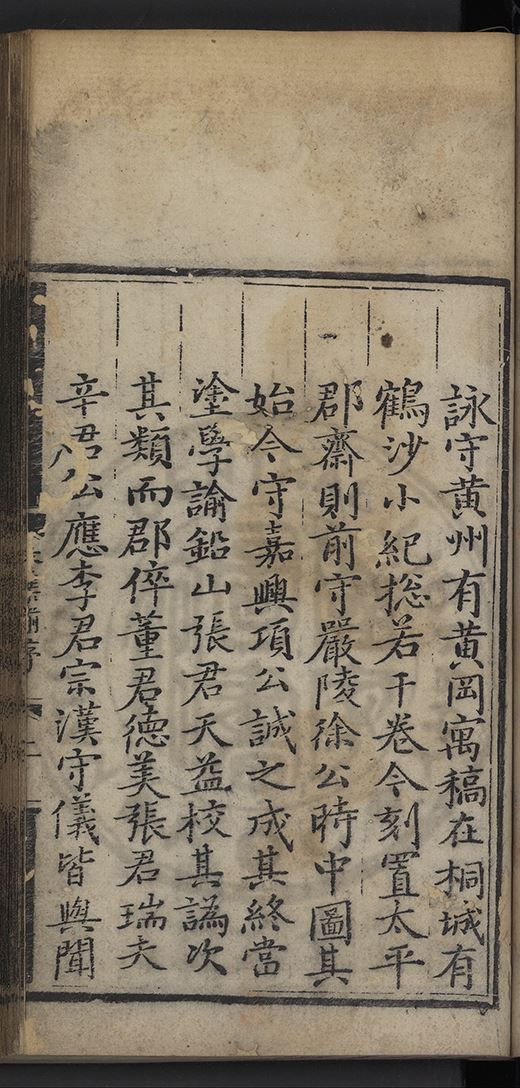 詠守黄州有黄岡寓稿在桐城有
鶴沙小紀捴若干卷今刻置太平
郡齋則前守嚴陵徐公時中圖其
始今守嘉興項公誠之成其終當
塗學諭鉛山張君天益校其譌次
其類而郡倅董君德美張君瑞夫
辛君公應李君宗漢守儀皆與聞